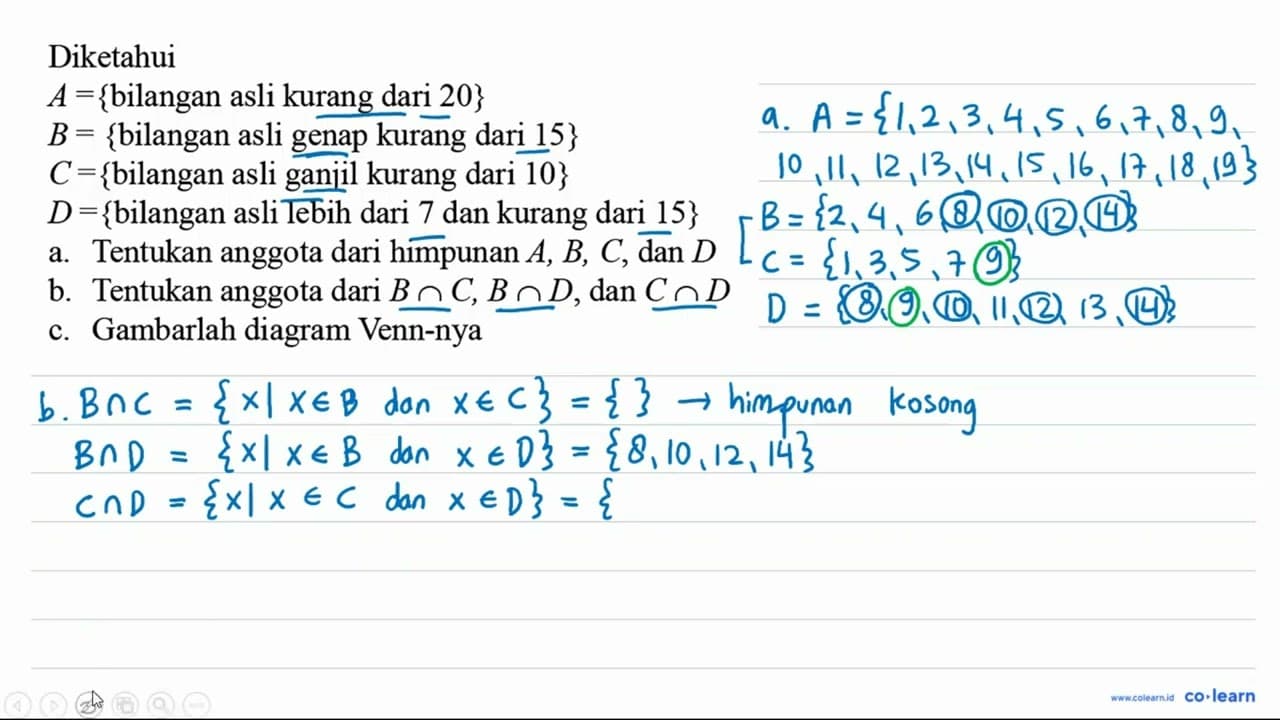 Diketahui
A = {bilangan asli kurang dari 20}
B = {bilangan asli genap kurang dari 15}
C = {bilangan asli ganjil kurang dari 10}
D = {bilangan asli lebih dari 7 dan kurang dari 15}
a. Tentukan anggota dari himpunan A, B, C, dan D
b. Tentukan anggota dari B ∩ C, B ∩ D, dan C ∩ D
c. Gambarlah diagram Venn-nya
a. A = {1, 2, 3, 4, 5, 6, 7, 8, 9,
10, 11, 12, 13, 14, 15, 16, 17, 18, 19}
B = {2, 4, 6 8, 10, 12, 14}
C = {1, 3, 5, 7 9}
D = {8, 9, 10, 11, 12, 13, 14}
b. B∩C = {x| x∈B dan x∈C} = { } → himpunan kosong
B∩D = {x| x∈B dan x∈D} = {8, 10, 12, 14}
C∩D = {x| x∈C dan x∈D} = {
www.colearn.id co·learn